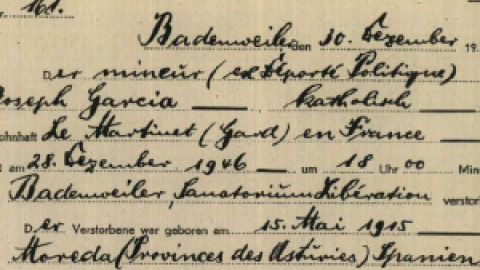 161.
Badenweiler, den 30. Dezember 19
Der mineur (ex Déporté Politique)
Joseph Garcia — katholisch —
ohnhaft Le Martinet (Gard) en France —
t am 28. Dezember 1946 — um 18 Uhr 00 Min
Badenweiler, Sanatorium Libération verstor
Der Verstorbene war geboren am 15. Mai 1915
Moreda (Provinces des Asturies) Spanien